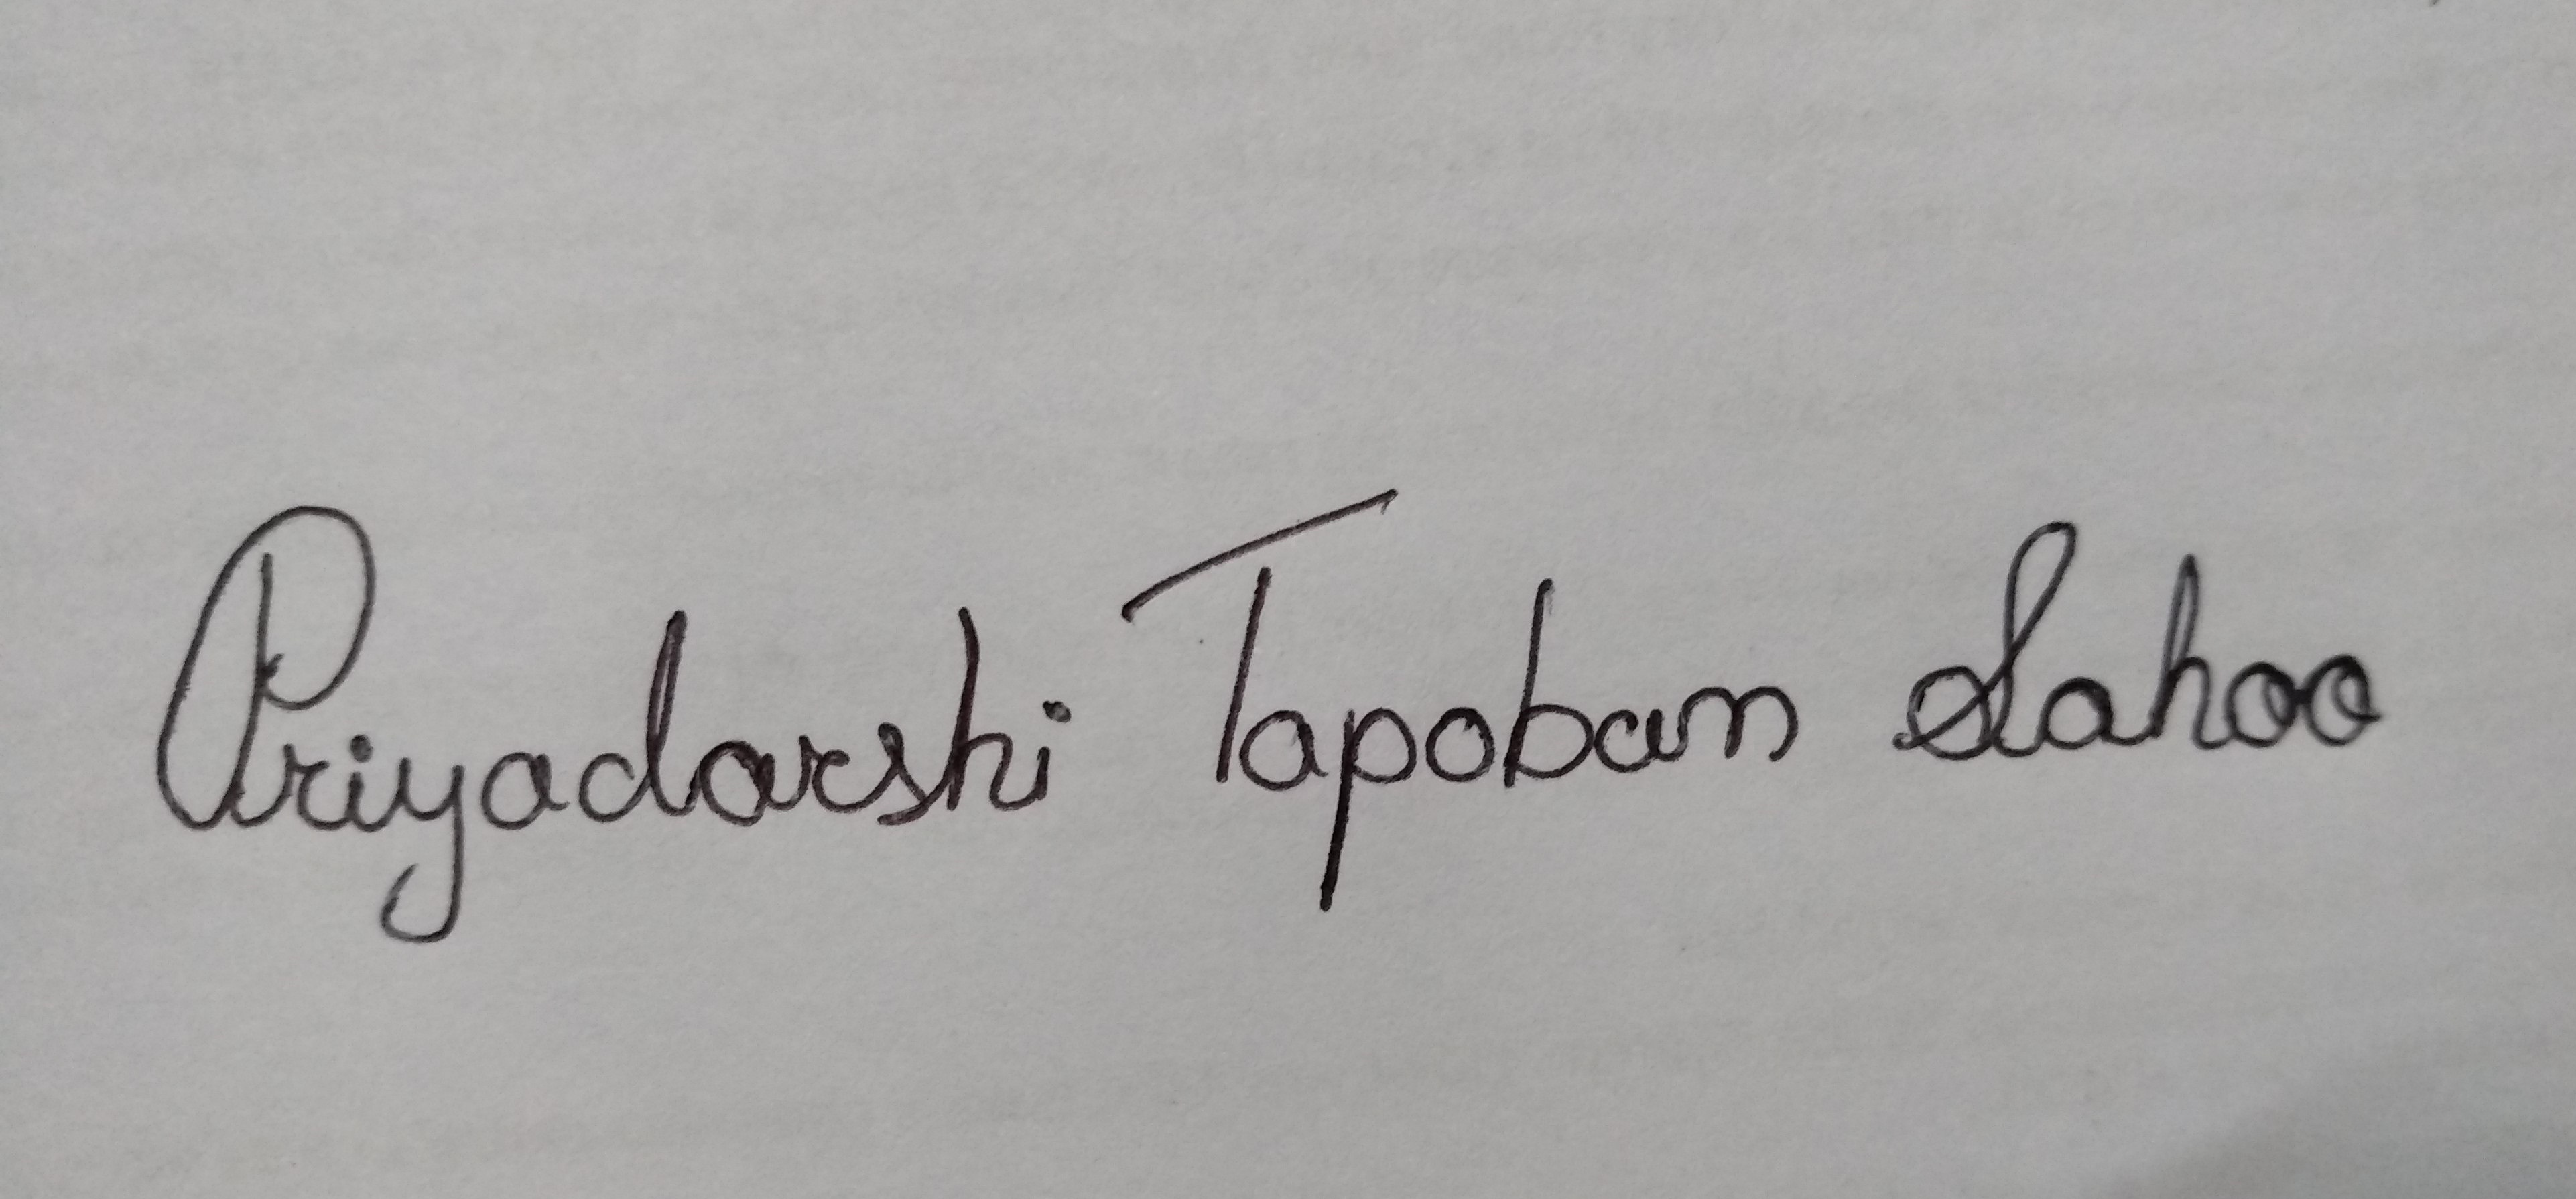 Priyadarshi Tapoban Sahoo